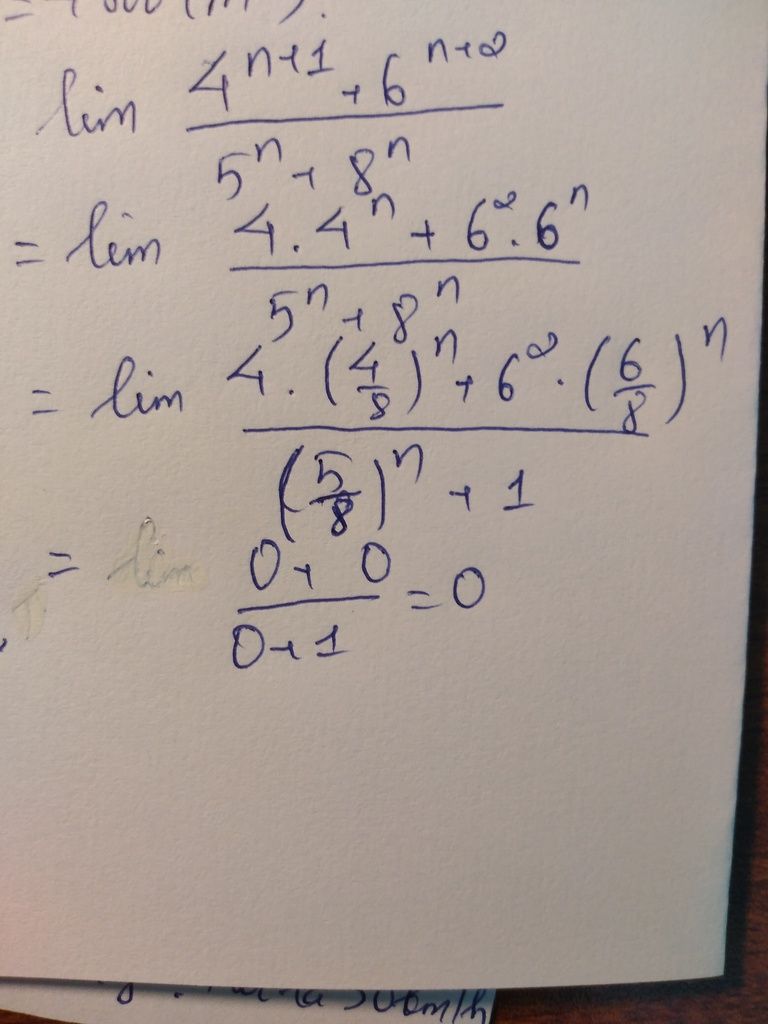 lim (4^{n+1} + 6^{n+2}) / (5^n + 8^n)
= lim (4 . 4^n + 6^2 . 6^n) / (5^n + 8^n)
= lim (4 . (4/8)^n + 6^2 . (6/8)^n) / ((5/8)^n + 1)
= (0 + 0) / (0 + 1) = 0